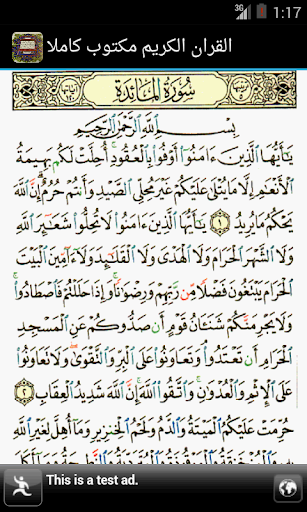 3G 1:17
القران الكريم مكتوب كاملا
سُورَةُ المَائِدَةِ
بِسْمِ ٱللَّهِ ٱلرَّحْمَٰنِ ٱلرَّحِيمِ
يَٰٓأَيُّهَا ٱلَّذِينَ ءَامَنُوٓا۟ أَوْفُوا۟ بِٱلْعُقُودِ ۚ أُحِلَّتْ لَكُم بَهِيمَةُ
ٱلْأَنْعَٰمِ إِلَّا مَا يُتْلَىٰ عَلَيْكُمْ غَيْرَ مُحِلِّى ٱلصَّيْدِ وَأَنتُمْ حُرُمٌ ۗ إِنَّ ٱللَّهَ
يَحْكُمُ مَا يُرِيدُ ١ يَٰٓأَيُّهَا ٱلَّذِينَ ءَامَنُوا۟ لَا تُحِلُّوا۟ شَعَٰٓئِرَ ٱللَّهِ
وَلَا ٱلشَّهْرَ ٱلْحَرَامَ وَلَا ٱلْهَدْىَ وَلَا ٱلْقَلَٰٓئِدَ وَلَآ ءَآمِّينَ ٱلْبَيْتَ
ٱلْحَرَامَ يَبْتَغُونَ فَضْلًا مِّن رَّبِّهِمْ وَرِضْوَٰنًا ۚ وَإِذَا حَلَلْتُمْ فَٱصْطَادُوا۟ ۚ
وَلَا يَجْرِمَنَّكُمْ شَنَـَٔانُ قَوْمٍ أَن صَدُّوكُمْ عَنِ ٱلْمَسْجِدِ
ٱلْحَرَامِ أَن تَعْتَدُوا۟ ۘ وَتَعَاوَنُوا۟ عَلَى ٱلْبِرِّ وَٱلتَّقْوَىٰ ۖ وَلَا تَعَاوَنُوا۟
عَلَى ٱلْإِثْمِ وَٱلْعُدْوَٰنِ ۚ وَٱتَّقُوا۟ ٱللَّهَ ۖ إِنَّ ٱللَّهَ شَدِيدُ ٱلْعِقَابِ ٢
حُرِّمَتْ عَلَيْكُمُ ٱلْمَيْتَةُ وَٱلدَّمُ وَلَحْمُ ٱلْخِنزِيرِ وَمَآ أُهِلَّ لِغَيْرِ ٱللَّهِ
بِهِۦ وَٱلْمُنْخَنِقَةُ وَٱلْمَوْقُوذَةُ وَٱلْمُتَرَدِّيَةُ وَٱلنَّطِيحَةُ وَمَآ
This is a test ad.